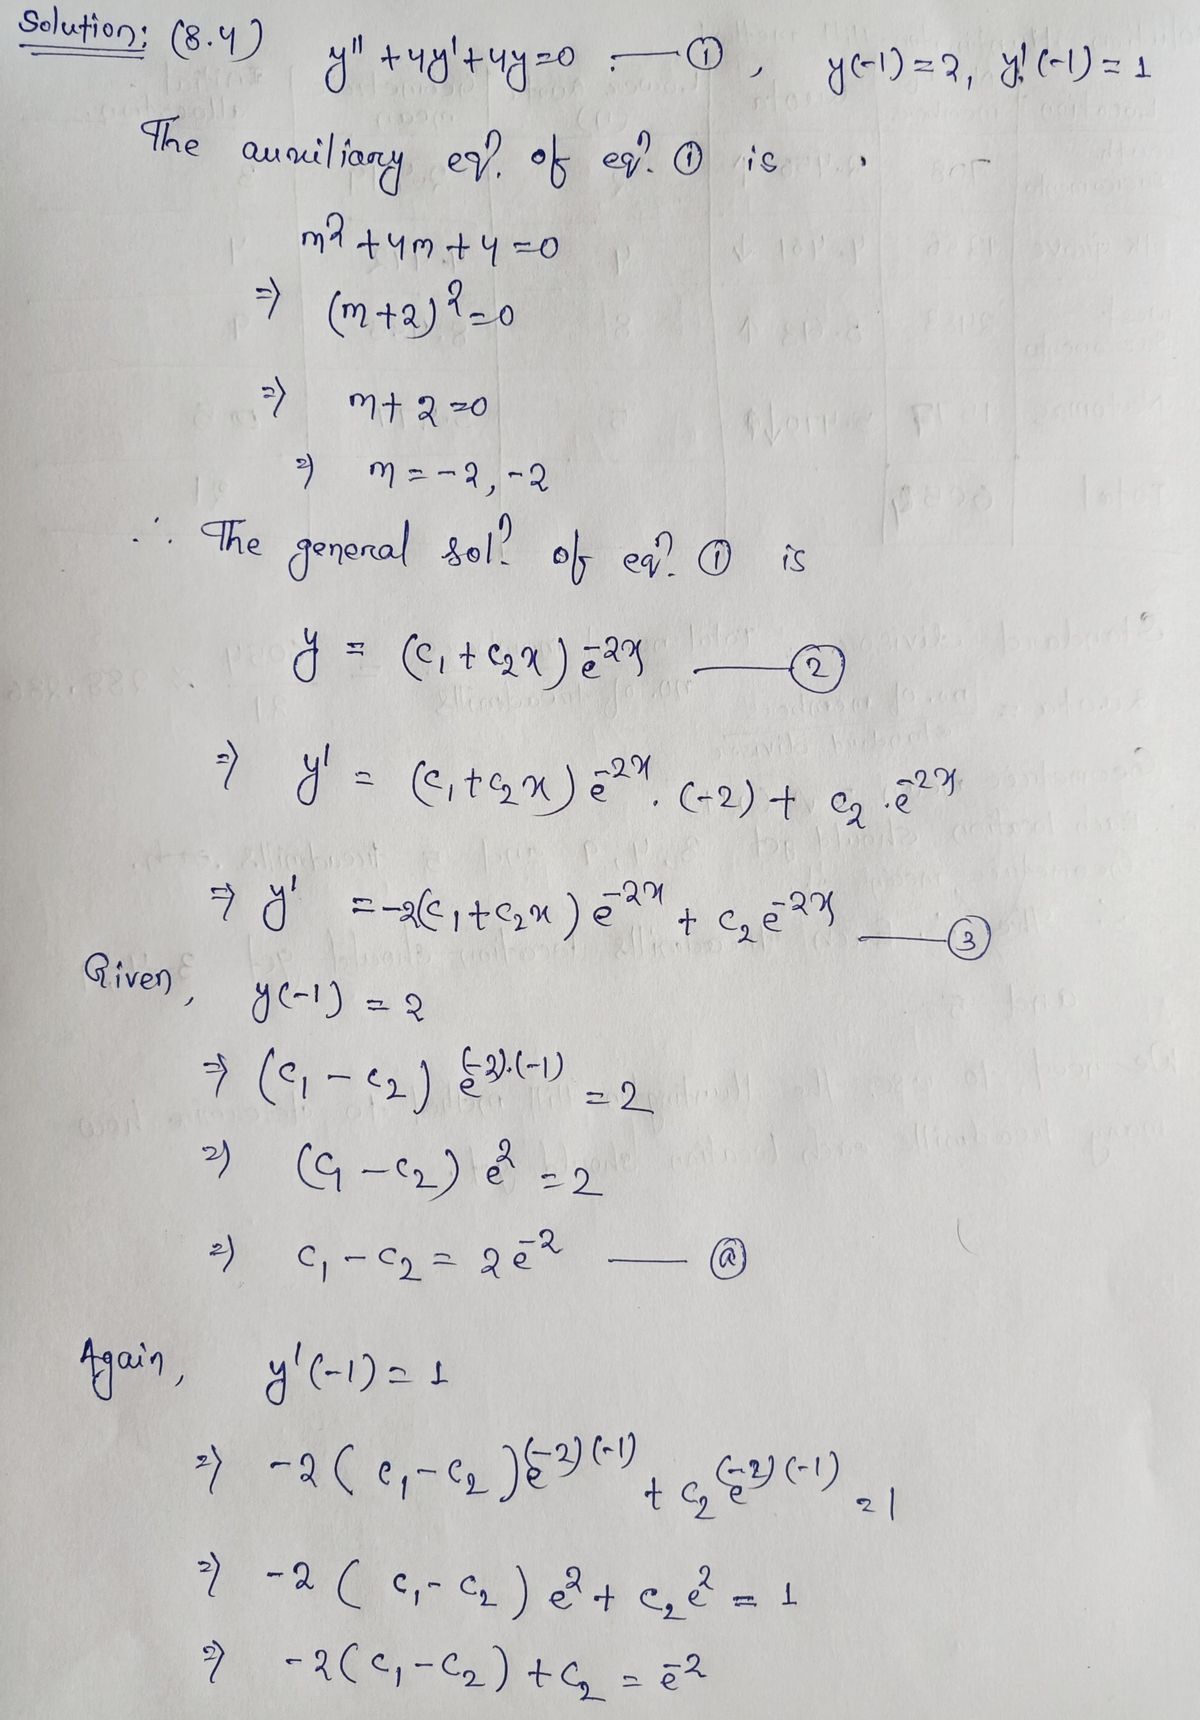 Solution: (8.4) y'' + 4y' + 4y = 0 . — ① , y(-1) = 2, y'(-1) = 1
The auxiliary eqn. of eqn. ① is
m² + 4m + 4 = 0
⇒ (m+2)² = 0
⇒ m + 2 = 0
⇒ m = -2, -2
∴ The general soln. of eqn. ① is
y = (c₁ + c₂x) e⁻²ˣ — ②
⇒ y' = (c₁ + c₂x) e⁻²ˣ . (-2) + c₂ . e⁻²ˣ
⇒ y' = -2(c₁ + c₂x) e⁻²ˣ + c₂ e⁻²ˣ — ③
Given, y(-1) = 2
⇒ (c₁ - c₂) e^(-2).(-1) = 2
⇒ (c₁ - c₂) e² = 2
⇒ c₁ - c₂ = 2e⁻² — ⓐ
Again, y'(-1) = 1
⇒ -2 (c₁ - c₂) e^(-2)(-1) + c₂ e^(-2)(-1) = 1
⇒ -2 (c₁ - c₂) e² + c₂ e² = 1
⇒ -2(c₁ - c₂) + c₂ = e⁻²